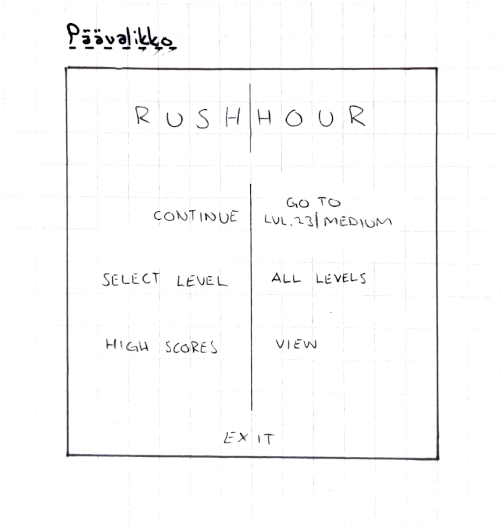 Päävalikko
RUSH HOUR
CONTINUE
GO TO
LVL.23 | MEDIUM
SELECT LEVEL
ALL LEVELS
HIGH SCORES
VIEW
EXIT